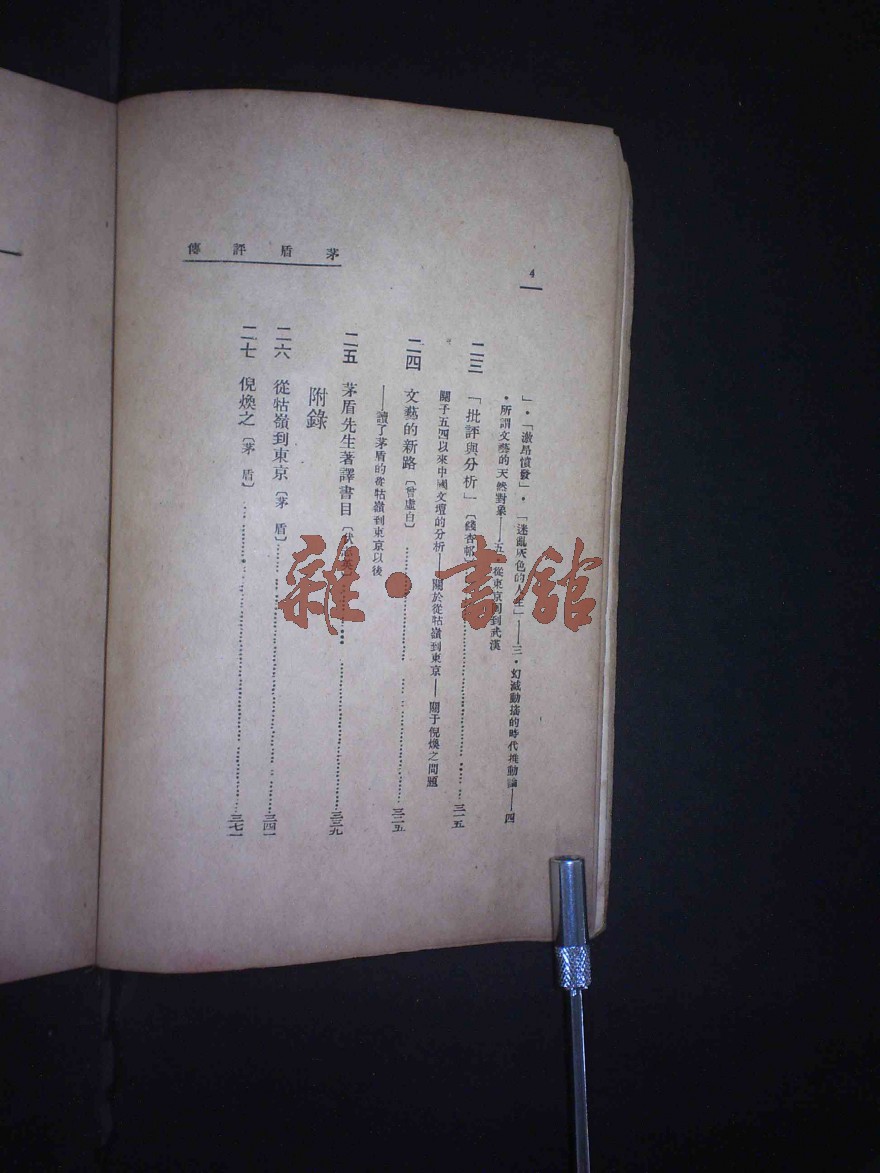 茅盾評傳
4
」・「激昂憤發」・「迷亂灰色的人生」——三・幻滅動搖的時代推動論——四
・所謂文藝的天然對象——五・從東京回到武漢
二三 「批評與分析」〔錢杏邨〕 三一五
關于五四以來中國文壇的分析——關於從牯嶺到東京——關于倪煥之問題
二四 文藝的新路〔曾虛白〕 三二五
——讀了茅盾的從牯嶺到東京以後
二五 茅盾先生著譯書目 三三九
附錄
二六 從牯嶺到東京〔茅盾〕 三四一
二七 倪煥之〔茅盾〕 三七一
雜・書館